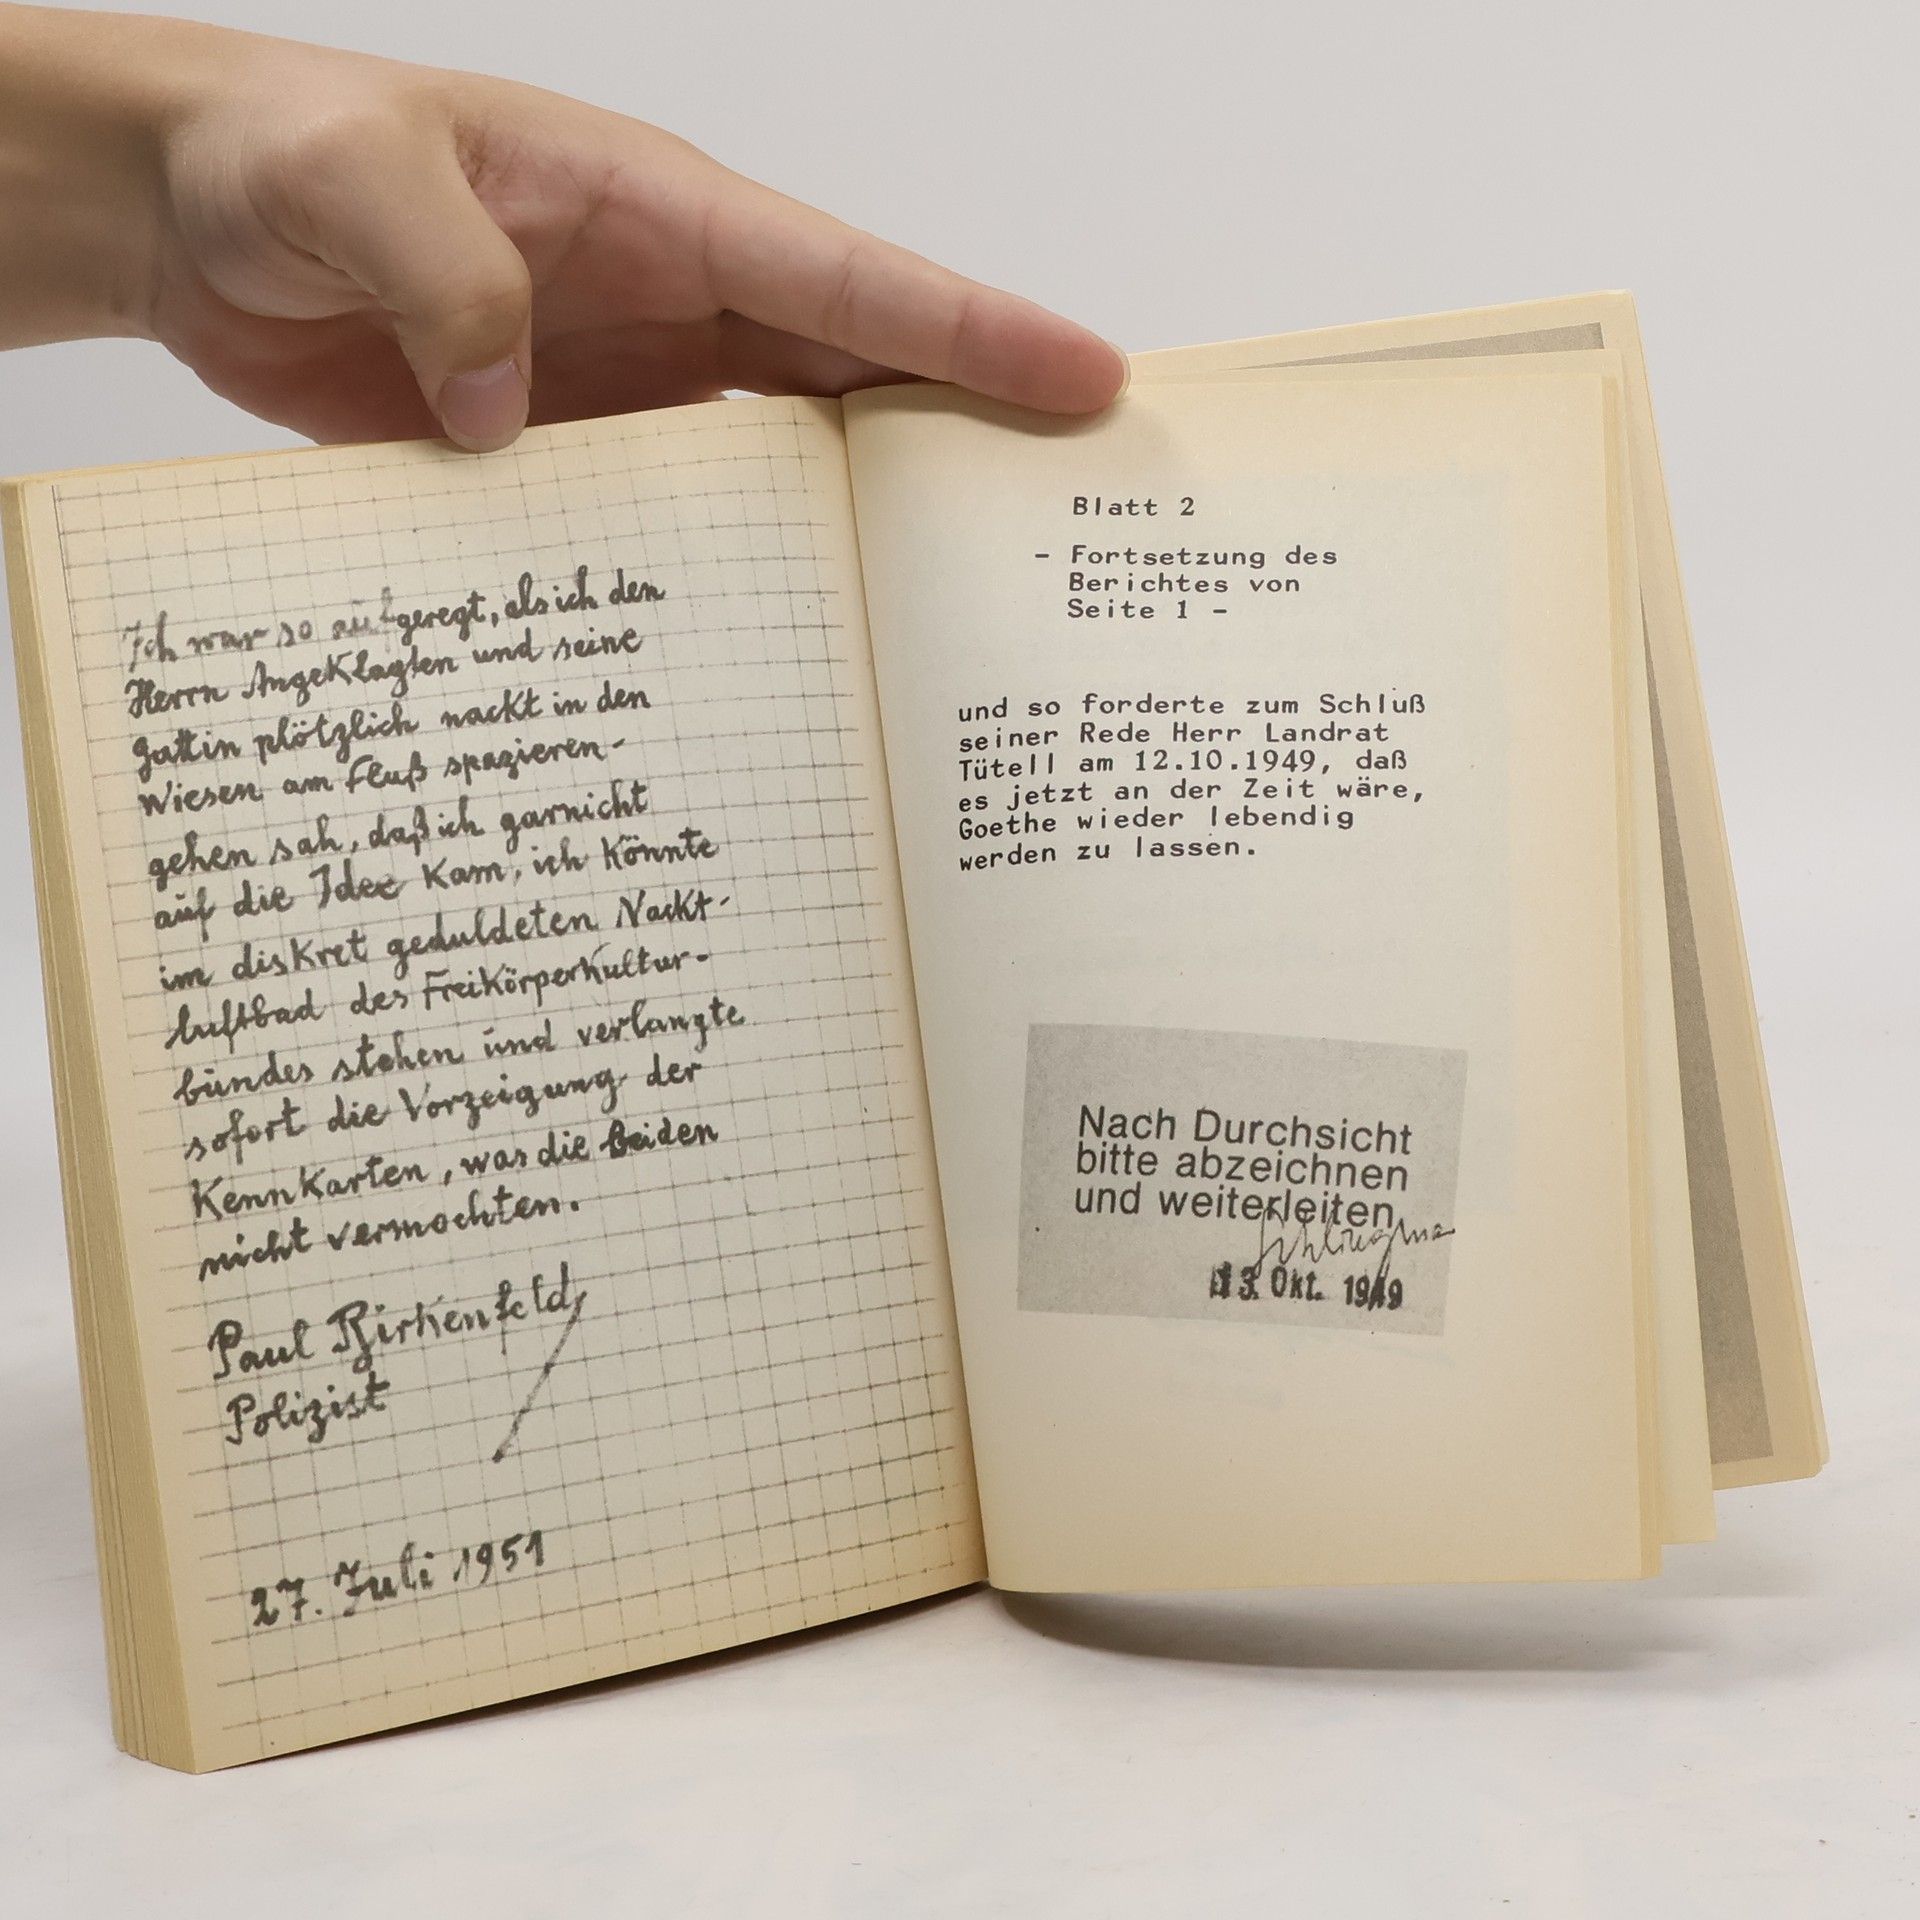 Ich war so aufgeregt, als ich den
Herrn Angeklagten und seine
Gattin plötzlich nackt in den
Wiesen am Fluß spazieren-
gehen sah, daß ich garnicht
auf die Idee kam, ich könnte
im diskret geduldeten Nackt-
luftbad des Freikörperkultur-
bundes stehen und verlangte
sofort die Vorzeigung der
Kennkarten, was die beiden
nicht vermochten.
Paul Birkenfeld
Polizist
27. Juli 1951
Blatt 2
- Fortsetzung des
Berichtes von
Seite 1 -
und so forderte zum Schluß
seiner Rede Herr Landrat
Tütell am 12.10.1949, daß
es jetzt an der Zeit wäre,
Goethe wieder lebendig
werden zu lassen.
Nach Durchsicht
bitte abzeichnen
und weiterleiten
13. Okt. 1949